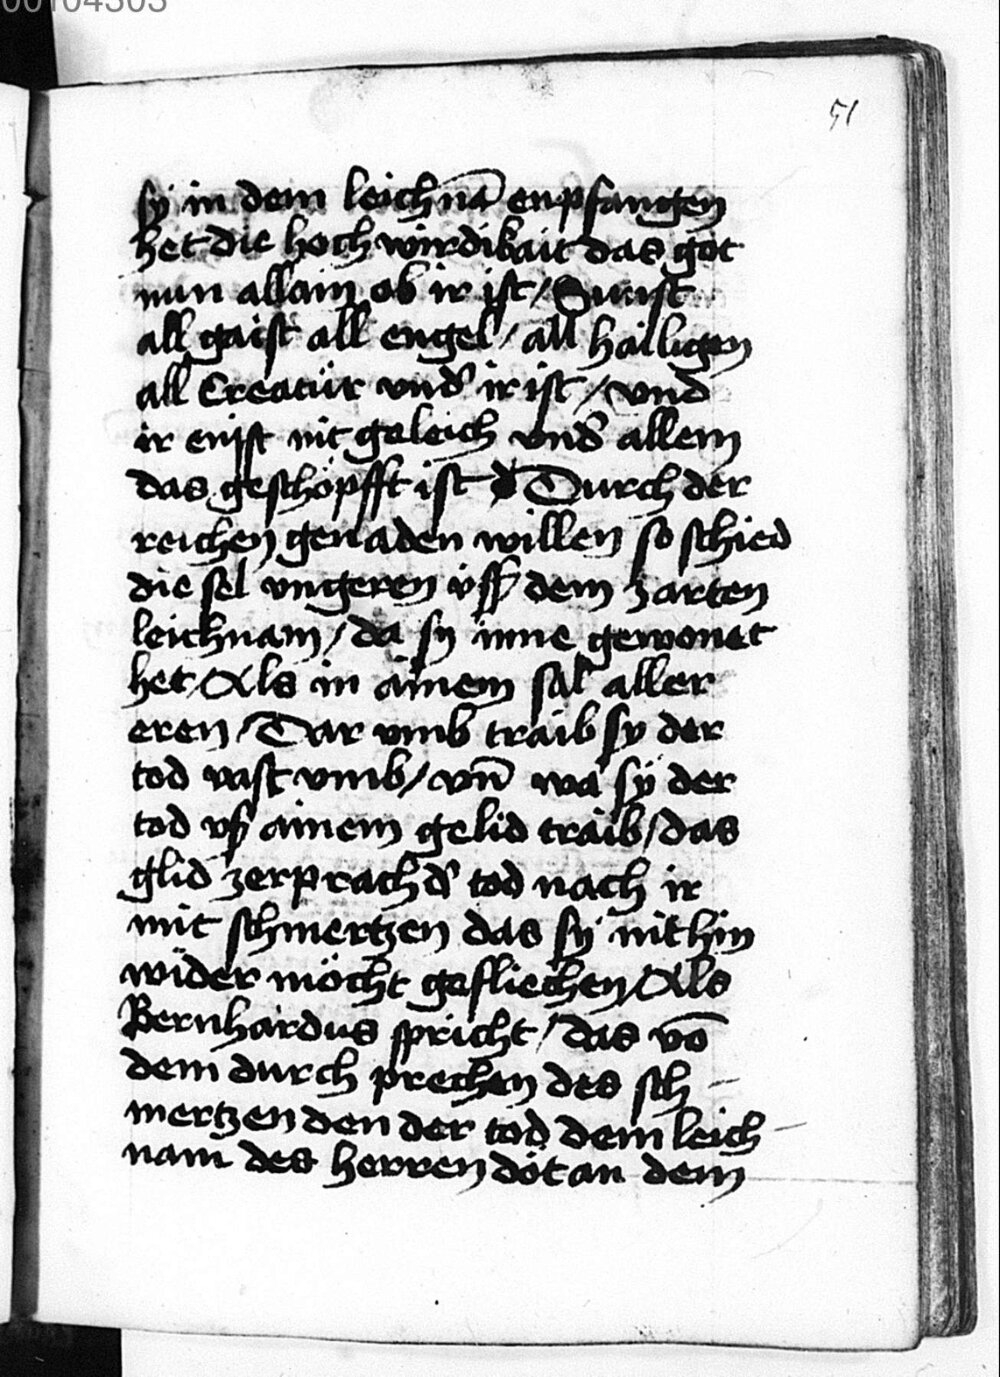 00104303
51
sÿ in dem leichnā enpfangen
het die hoch wirdikait das got
nun allain ob ir ist / Sunst
all gaist all engel / all hailigen
all Creatür vnd' ir ist / vnd
ir enist nit geleich vnd' allem
das geschöpfft ist Durch der
reichen genaden willen so schied
die sel vngeren vsß dem zarten
leichnam / da sy inne gewonet
het / Als in ainem sal aller
eren / Dar vmb traib sy der
tod vast vmb / vn̄ wa sÿ der
tod vß ainem gelid traib / das
glid zerprach d' tod nach ir
mit schmertzen das sÿ nit hin
wider möcht gefliechen / Als
Bernhardus spricht / das vō
dem durch prechen des sch –
mertzen den der tod dem leich –
nam des herren dot an dem